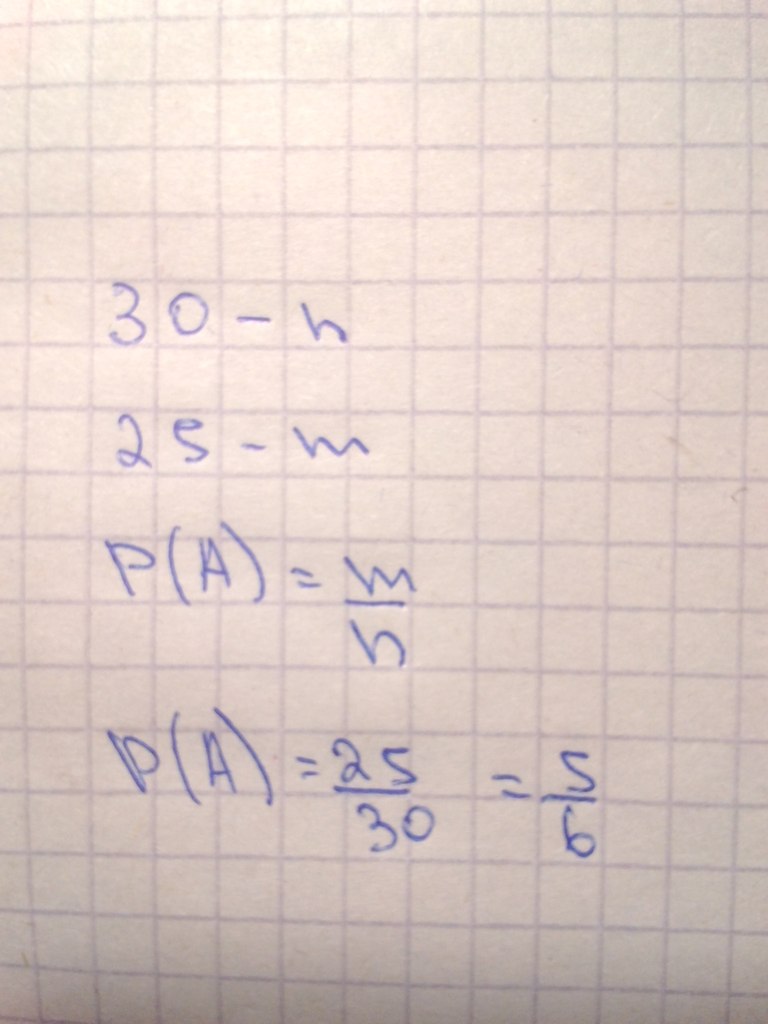 30 - n
25 - m
P(A) = m/n
P(A) = 25/30 = 5/6